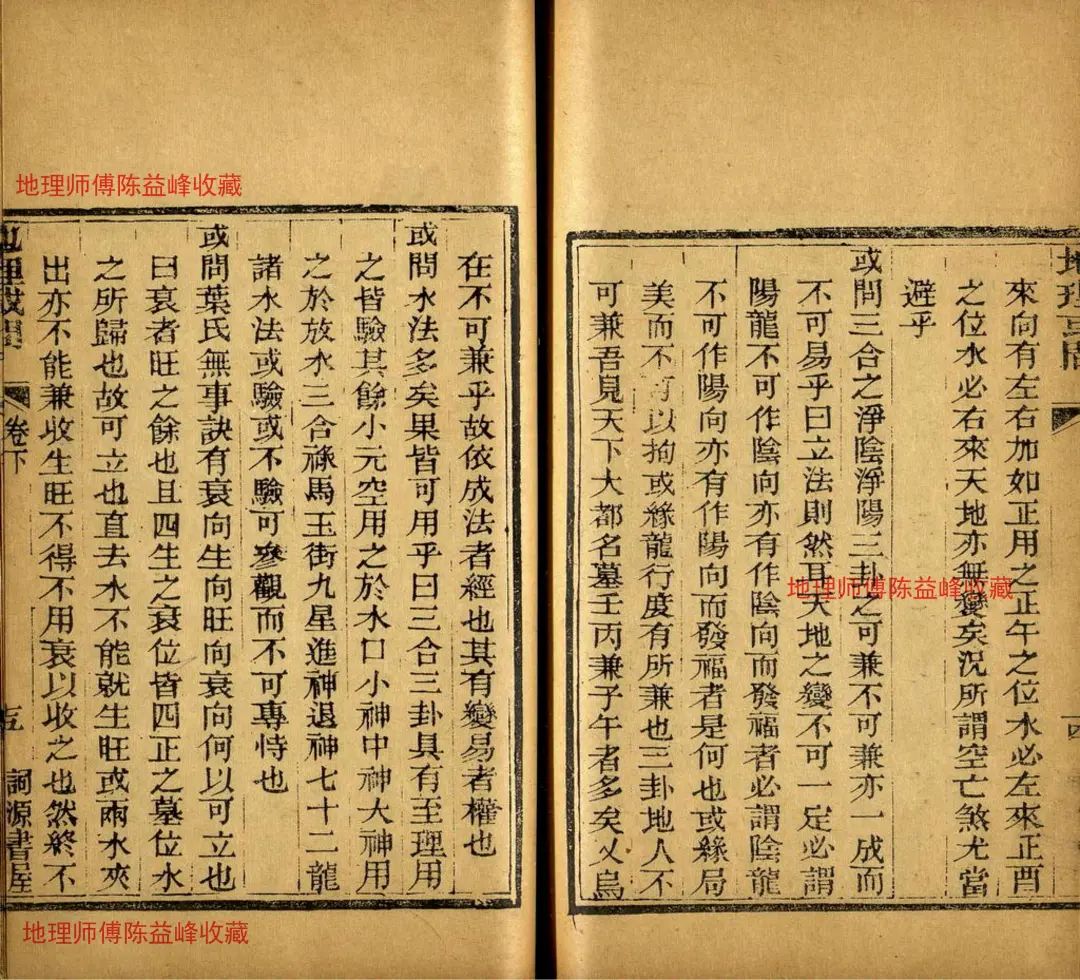 來向有左右加如正用之正午之位水必左來正酉
之位水必右來天地亦無變矣況所謂空亡煞尤當
避乎
或問三合之淨陰淨陽三卦之可兼不可兼亦一成而
不可易乎曰立法則然耳天地之變不可一定必謂
陽龍不可作陰向亦有作陰向而發福者必謂陰龍
不可作陽向亦有作陽向而發福者是何也或緣局
美而不可以拘或緣龍行度有所兼也三卦地人不
可兼吾見天下大都名墓壬丙兼子午者多矣又烏
在不可兼乎故依成法者經也其有變易者權也
或問水法多矣果皆可用乎曰三合三卦具有至理用
之皆驗其餘小元空用之於水口小神中神大神用
之於放水三合祿馬玉街九星進神退神七十二龍
諸水法或驗或不驗可參觀而不可專恃也
或問葉氏無事訣有衰向生向旺向衰向何以可立也
曰衰者旺之餘也且四生之衰位皆四正之墓位水
之所歸也故可立也直去水不能就生旺或兩水夾
出亦不能兼收生旺不得不用衰以收之也然終不
地理或問
卷下
五
詞源書屋
地理师傅陈益峰收藏
地理师傅陈益峰收藏
地理师傅陈益峰收藏